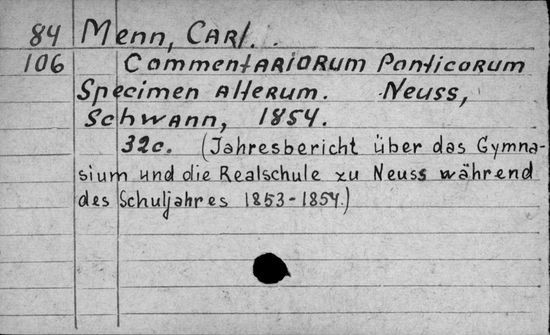 84 Menn, Carl...
106 Commentariorum Ponticorum
Specimen alterum. Neuss,
Schwann, 1854.
32c. (Jahresbericht über das Gymna-
sium und die Realschule zu Neuss während
des Schuljahres 1853-1854.)